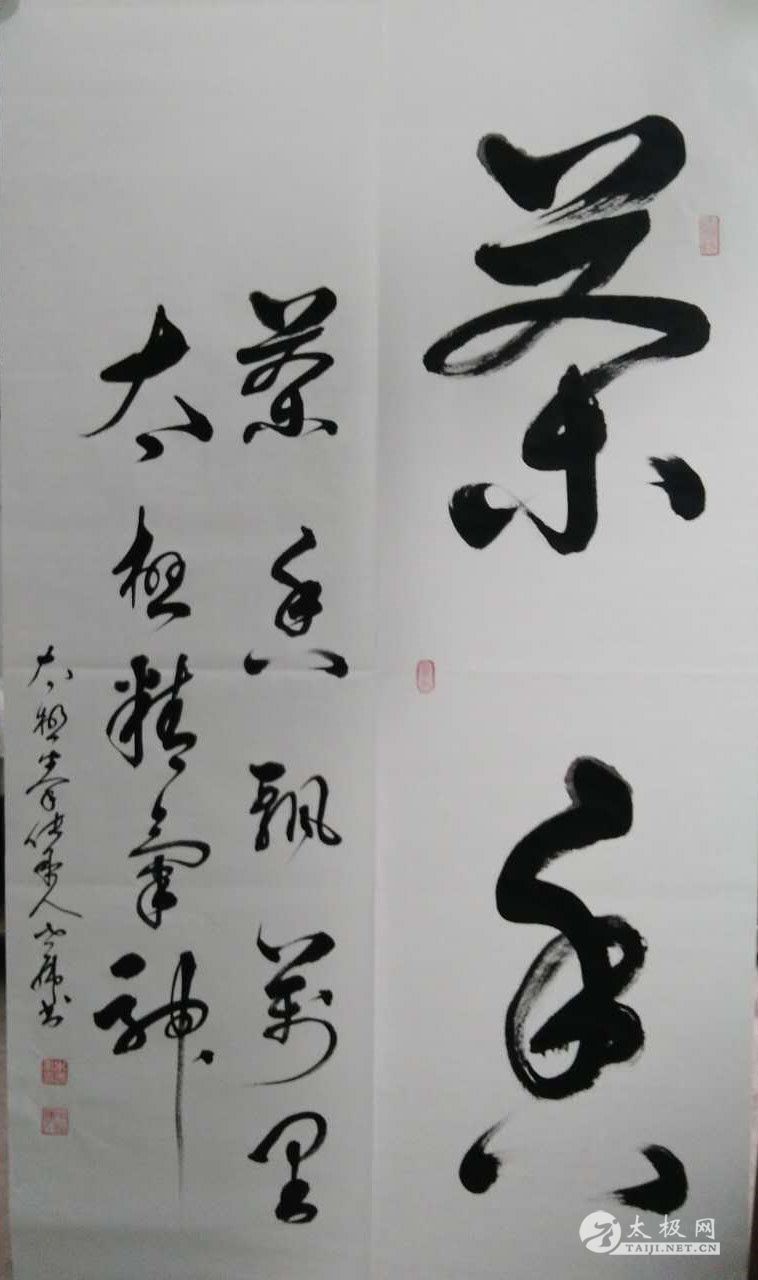 茶香
茶香飘萬里
太極精氣神
太極拳传承人 书
太极网
TAIJI.NET.CN